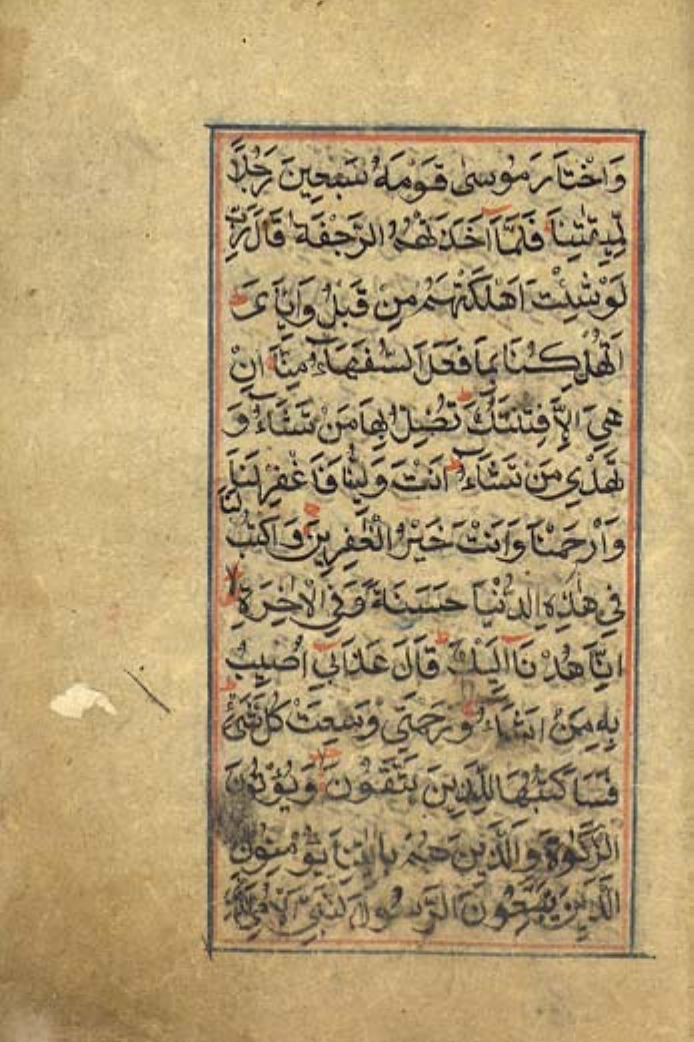 وَاخْتَارَ مُوسٰى قَوْمَهُ سَبْعِينَ رَجُلًا
لِمِيقَاتِنَا فَلَمَّا اَخَذَتْهُمُ الرَّجْفَةُ قَالَ رَبِّ
لَوْ شِئْتَ اَهْلَكْتَهُمْ مِنْ قَبْلُ وَاِيَّايَ
اَتُهْلِكُنَا بِمَا فَعَلَ السُّفَهَاءُ مِنَّا اِنْ
هِيَ اِلَّا فِتْنَتُكَ تُضِلُّ بِهَا مَنْ تَشَاءُ وَ
تَهْدِي مَنْ تَشَاءُ اَنْتَ وَلِيُّنَا فَاغْفِرْ لَنَا
وَارْحَمْنَا وَاَنْتَ خَيْرُ الْغٰفِرِينَ وَاكْتُبْ لَنَا
فِي هٰذِهِ الدُّنْيَا حَسَنَةً وَفِي الْاٰخِرَةِ
اِنَّا هُدْنَا اِلَيْكَ قَالَ عَذَابِي اُصِيبُ
بِهِ مَنْ اَشَاءُ وَرَحْمَتِي وَسِعَتْ كُلَّ شَيْءٍ
فَسَاَكْتُبُهَا لِلَّذِينَ يَتَّقُونَ وَيُؤْتُونَ
الزَّكٰوةَ وَالَّذِينَ هُمْ بِاٰيٰتِنَا يُؤْمِنُونَ
الَّذِينَ يَتَّبِعُونَ الرَّسُولَ النَّبِيَّ الْاُمِّيَّ